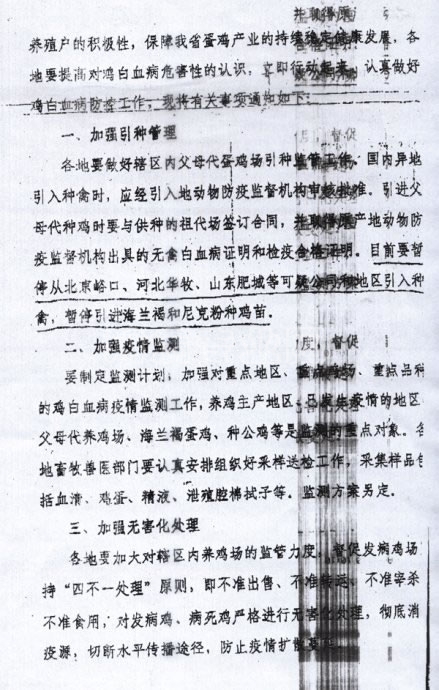 并取得原
养殖户的积极性，保障我省蛋鸡产业的持续稳定健康发展，各
地要提高对鸡白血病危害性的认识，立即行动起来，认真做好
鸡白血病防控工作，现将有关事项通知如下：
一、加强引种管理
各地要做好辖区内父母代蛋鸡场引种监管工作。国内异地
引入种禽时，应经引入地动物防疫监督机构审核批准。引进父
母代种鸡时要与供种的祖代场签订合同，并取得原产地动物防
疫监督机构出具的无禽白血病证明和检疫合格证明。目前要暂
停从北京峪口、河北华牧、山东肥城等可疑公司和地区引入种
禽，暂停引进海兰褐和尼克粉种鸡苗。
二、加强疫情监测 度，督促
要制定监测计划，加强对重点地区、重点鸡场、重点品种
的鸡白血病疫情监测工作，养鸡主产地区、已发生疫情的地区
父母代养鸡场、海兰褐蛋鸡、种公鸡等是监测的重点对象。各
地畜牧兽医部门要认真安排组织好采样送检工作，采集样品包
括血清、鸡蛋、精液、泄殖腔棉拭子等。监测方案另定。
三、加强无害化处理
各地要加大对辖区内养鸡场的监管力度，督促发病鸡场
持“四不一处理”原则，即不准出售、不准转运、不准宰杀
不准食用，对发病鸡、病死鸡严格进行无害化处理，彻底消
疫源，切断水平传播途径，防止疫情扩散蔓延。